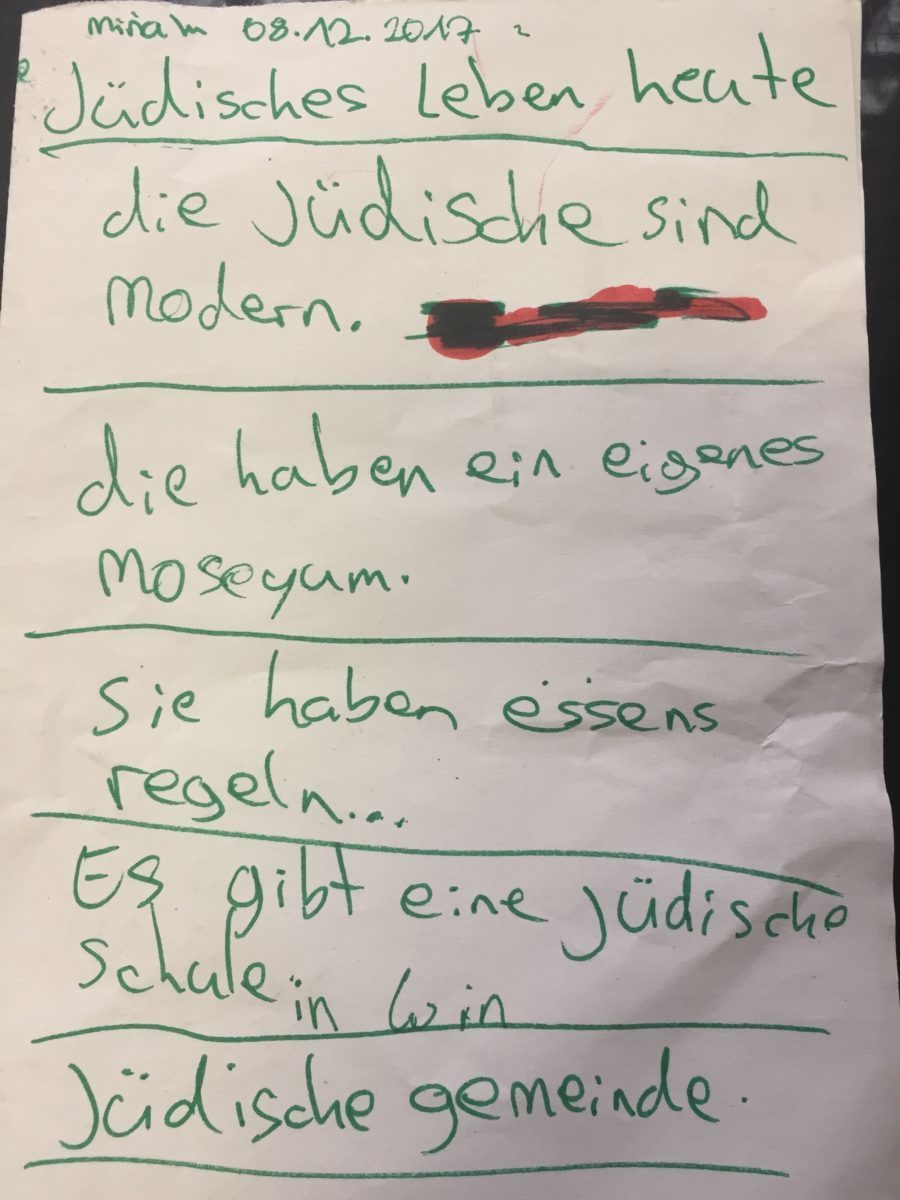 Miriam 08.12.2017
Jüdisches Leben heute
die Jüdische sind
modern.
die haben ein eigenes
Moseyum.
Sie haben essens
regeln...
Es gibt eine jüdische
Schule in Win
Jüdische gemeinde.